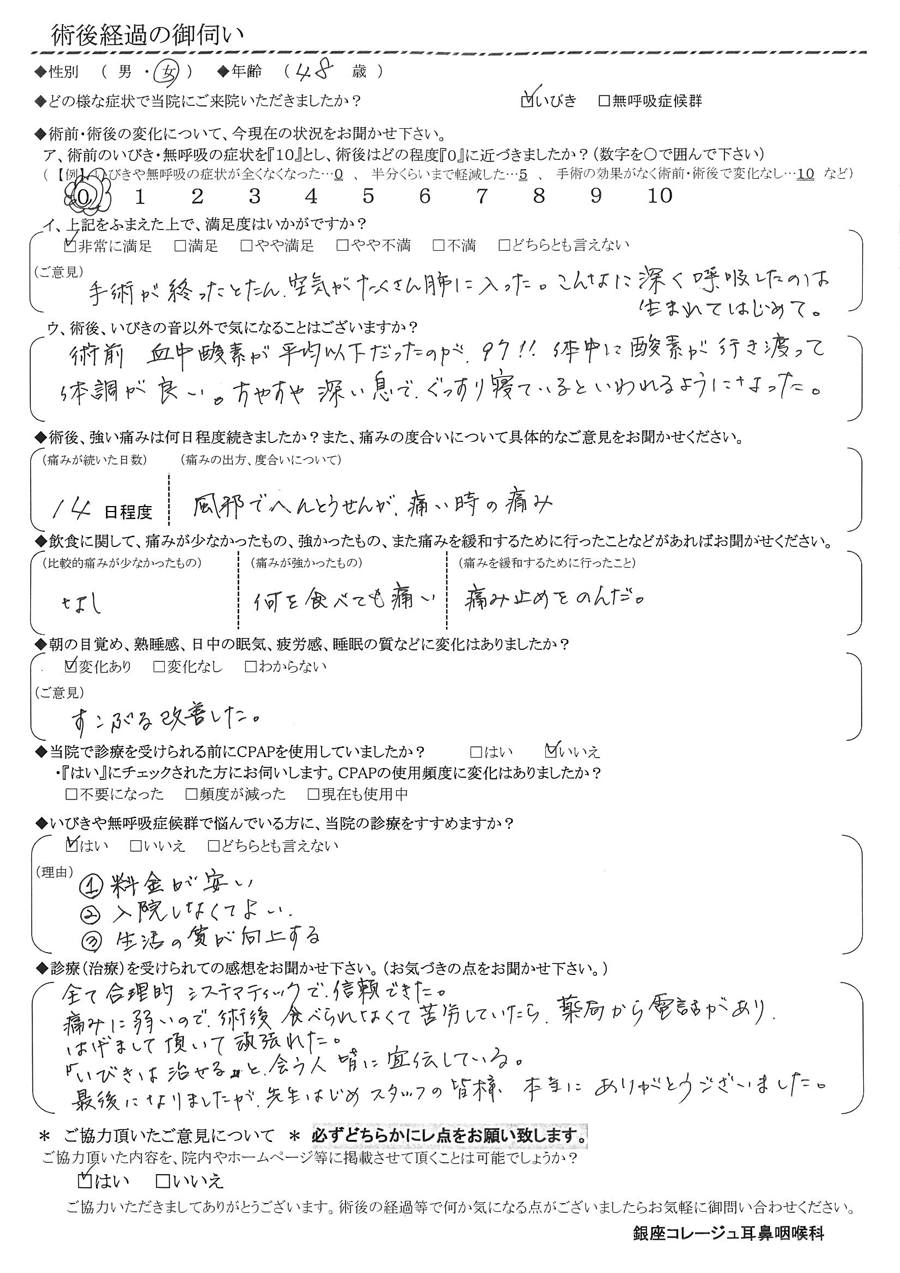 術後経過の御伺い
◆性別 ( 男 ・ 女 ) ◆年齢 ( 48 歳 )
◆どの様な症状で当院にご来院いただきましたか? ☑いびき □無呼吸症候群
◆術前・術後の変化について、今現在の状況をお聞かせ下さい。
ア、術前のいびき・無呼吸の症状を『10』とし、術後はどの程度『0』に近づきましたか?(数字を〇で囲んで下さい)
(【例】いびきや無呼吸の症状が全くなくなった…0 、 半分くらいまで軽減した…5 、 手術の効果がなく術前・術後で変化なし…10 など)
0 1 2 3 4 5 6 7 8 9 10
イ、上記をふまえた上で、満足度はいかがですか?
☑非常に満足 □満足 □やや満足 □やや不満 □不満 □どちらとも言えない
(ご意見)
手術が終ったとたん、空気がたくさん肺に入った。こんなに深く呼吸したのは
生まれてはじめて。
ウ、術後、いびきの音以外で気になることはございますか?
術前 血中酸素が平均以下だったのが、97!! 体中に酸素が行き渡って
体調が良い。すやすや深い息で、ぐっすり寝ているといわれるようになった。
◆術後、強い痛みは何日程度続きましたか?また、痛みの度合いについて具体的なご意見をお聞かせください。
(痛みが続いた日数) (痛みの出方、度合いについて)
14 日程度 風邪でへんとうせんが、痛い時の痛み
◆飲食に関して、痛みが少なかったもの、強かったもの、また痛みを緩和するために行ったことなどがあればお聞かせください。
(比較的痛みが少なかったもの) (痛みが強かったもの) (痛みを緩和するために行ったこと)
なし 何を食べても痛い 痛み止めをのんだ。
◆朝の目覚め、熟睡感、日中の眠気、疲労感、睡眠の質などに変化はありましたか?
☑変化あり □変化なし □わからない
(ご意見)
すこぶる改善した。
◆当院で診療を受けられる前にCPAPを使用していましたか? □はい ☑いいえ
・『はい』にチェックされた方にお伺いします。CPAPの使用頻度に変化はありましたか?
□不要になった □頻度が減った □現在も使用中
◆いびきや無呼吸症候群で悩んでいる方に、当院の診療をすすめますか?
☑はい □いいえ □どちらとも言えない
(理由)
① 料金が安い
② 入院しなくてよい.
③ 生活の質が向上する
◆診療(治療)を受けられての感想をお聞かせ下さい。(お気づきの点をお聞かせ下さい。)
全て合理的 システマティックで、信頼できた。
痛みに弱いので、術後 食べられなくて苦労していたら、薬局から電話があり、
はげまして頂いて頑張れた。
「いびきは治せる」と、会う人 皆に宣伝している。
最後になりましたが、先生はじめスタッフの皆様 本当にありがとうございました。
* ご協力頂いたご意見について * 必ずどちらかにレ点をお願い致します。
ご協力頂いた内容を、院内やホームページ等に掲載させて頂くことは可能でしょうか?
☑はい □いいえ
ご協力いただきましてありがとうございます。術後の経過等で何か気になる点がございましたらお気軽に御問い合わせください。
銀座コレージュ耳鼻咽喉科